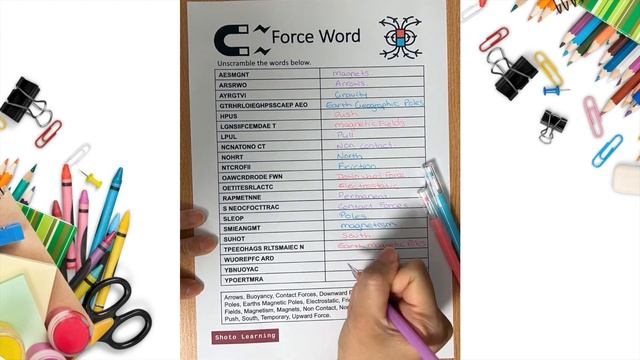 Force Word
Unscramble the words below.
AESMGNT magnets
ARSRWO Arrows
AYRGTVI Gravity
GTRHRLOIEGHPSSCAEP AEO Earth Geographic Poles
HPUS Push
LGNSIIFCEMDAE T magnetic Fields
LPUL Pull
NCNATONO CT Non Contact
NOHRT North
NTCROFII Friction
OAWCRDRODE FWN Downward Force
OETITESRLACTC Electrostatic
RAPMETNNE Permanent
S NEOCFOCTTRAC Contact Forces
SLEOP Poles
SMIEANGMT magnetism
SUHOT South
TPEEOHAGS RLTSMAIEC N Earth magnetic Poles
WUOREPFC ARD
YBNUOYAC
YPOERTMRA
Arrows, Buoyancy, Contact Forces, Downward
Poles, Earths Magnetic Poles, Electrostatic,
Fields, Magnetism, Magnets, Non Contact,
Push, South, Temporary, Upward Force.
Shoto Learning